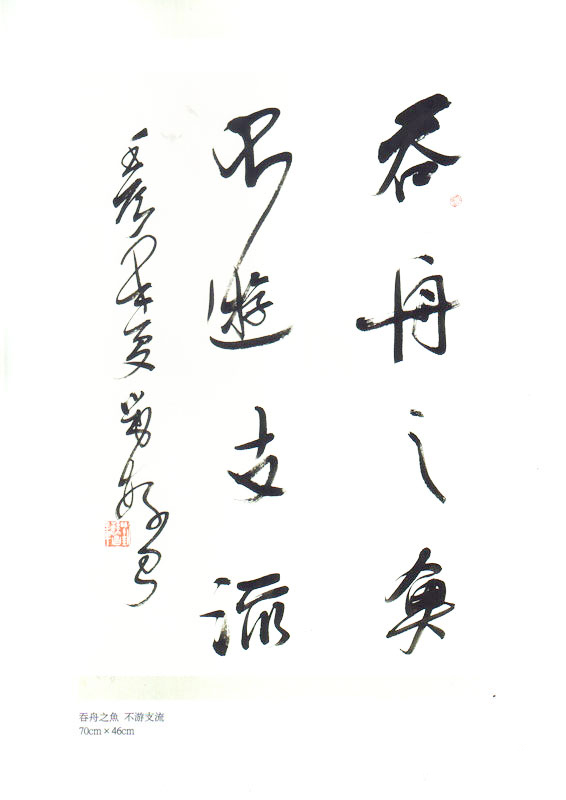 吞舟之魚
不遊支流
壬辰 夏
吞舟之魚 不游支流
70cm×46cm